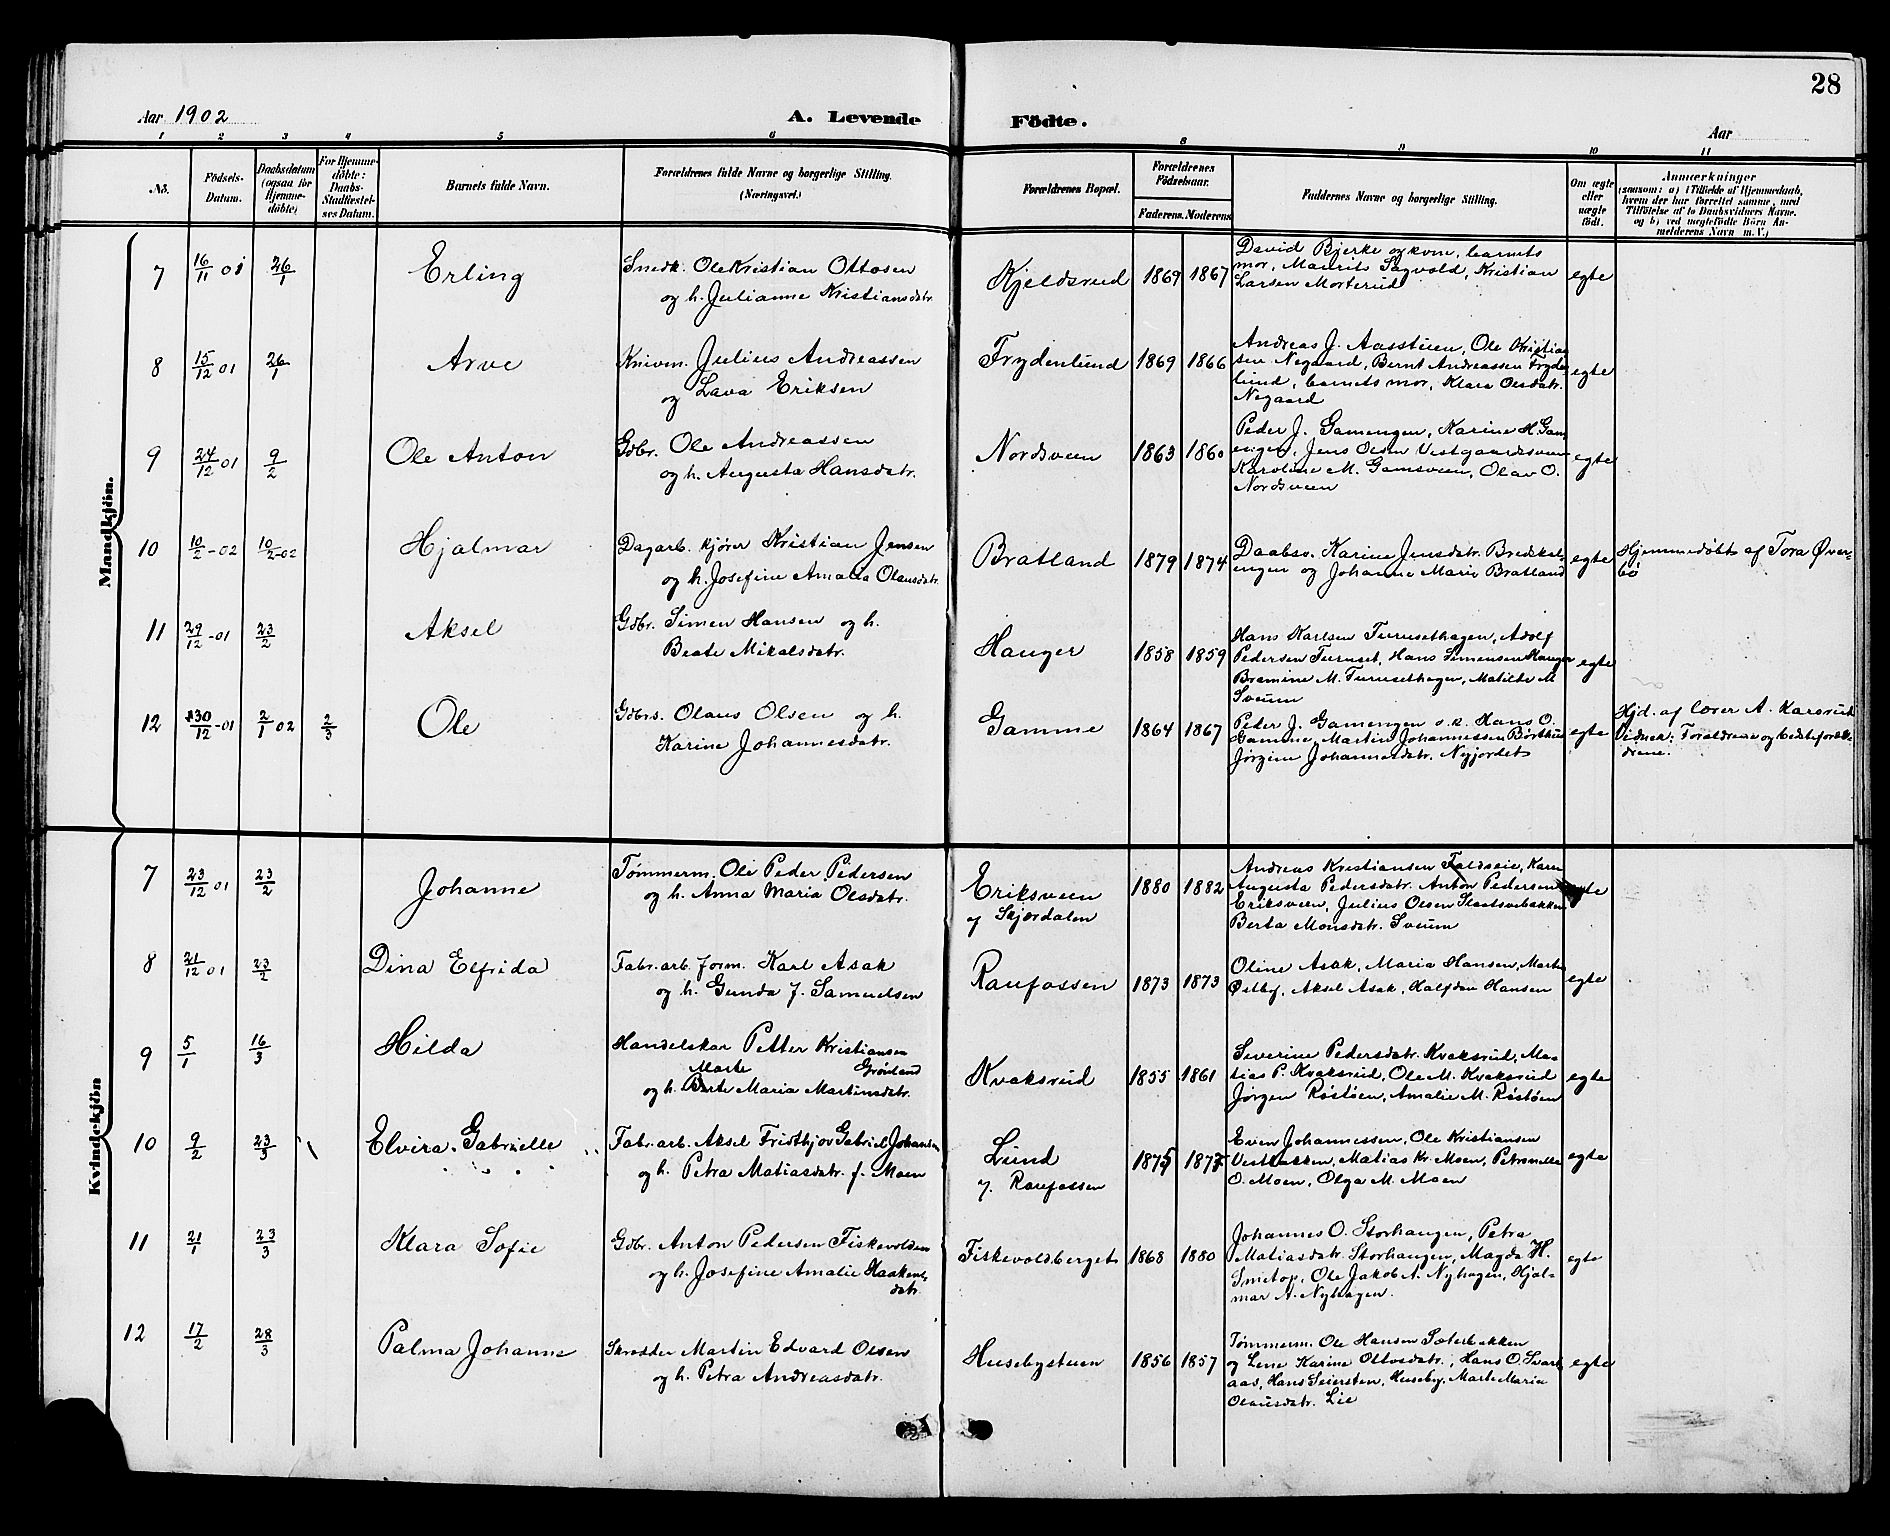 28
Aar 1902
A. Levende Födte.
Aar
1 2 3 4 5 6 8 9 10 11
No.
Födsels-Datum.
Daabsdatum (ogsaa for Hjemme-döbte)
For Hjemme-döbte: Daabs-Stadfæstel-ses Datum.
Barnets fulde Navn.
Forældrenes fulde Navne og borgerlige Stilling. (Næringsvei.)
Forældrenes Bopæl.
Forældrenes Födselsaar.
Faderens. Moderens
Faddernes Navne og borgerlige Stilling.
Om ægte eller uægte födt.
Anmærkninger
(saasom: a) i Tilfælde af Hjemmedaab, hvem der har forrettet samme, med Tilföielse af to Daabsvidners Navne. og b) ved uægtefödte Börn An-melderens Navn m. V.)
Mandkjön.
7 16/11 01 26/1 Erling
Snedk. Ole Kristian Ottosen
og h. Julianne Kristiansdatr.
Kjeldsrud 1869 1867
David Bjerke og kon, barnets
mor, Maurits Sagvold, Kristian
Larsen Morterud
egte
8 15/12 01 26/1 Arve
Knivm. Julius Andreassen
og Lava Eriksen
Frydenlund 1869 1866
Andreas J. Aasstuen, Ole Kristian
sen Negaard, Bernt Andreassen Fryden
lund, barnets mor, Klara Olsdatr.
Negaard
egte
9 24/12 01 9/2 Ole Anton
Gdbr. Ole Andreassen
og h. Augusta Hansdatr.
Nordsveen 1863 1860
Peder J. Gamengen, Karine H. Gam
engen, Jens Olsen Vestgaardsveen
Karoline M. Gamsveen, Olav O.
Nordsveen
egte
10 10/2 -02 10/2 -02 Hjalmar
Dagarb. kjører Kristian Jensen
og h. Josefine Amalia Olausdatr.
Bratland 1879 1874
Daabsv. Karine Jensdatr. Bredskal
engen og Johanne Marie Bratland
egte
Hjemmedøbt af Tora Øver-
bö
11 29/12 -01 23/2 Aksel
Gdbr. Simen Hansen og h.
Beate Mikalsdatr.
Hauger 1858 1859
Hans Karlsen Turusethagen, Adolf
Pedersen Turuset, Hans Simensen Hauger
Bramine M. Turusethagen, Matilde M
Sveum
egte
12 30/12 -01 2/1 02 2/3 Ole
Gdbrs. Olaus Olsen og h.
Karine Johannesdatr.
Gamme 1864 1867
Peder J. Gamengen o.s. Hans O.
Gamme, Martin Johannessen
Jørgine Johannesdatr. Nyjordet
egte
Hjd. af lærer A. Karsrud
Vidner: Forældrene og bedsteforæl-
drene.
Kvindekjön
7 23/12 01 23/2 Johanne
Tømmerm. Ole Peder Pedersen
og h. Anna Maria Olsdatr.
Eriksveen
af Skjerdalen
1880 1882
Andreas Kristiansen Faldseie, Karen
Augusta Pedersdatr. Anton Pedersen
Eriksveen, Julius Olsen Slaatsvebakken
Berta Monsdatr. Sveum
egte
8 21/12 01 23/2 Dina Elfrida
Fabr.arb. form. Karl Asak
og h. Gunda f. Samuelsen
Raufossen 1873 1873
Oline Asak, Maria Hansen, Marte
Østby, Aksel Asak, Halfdan Hansen
egte
9 5/1 16/3 Hilda
Handelskar Petter Kristiansen
Grønland
Marte
og h. Berte Maria Martinsdatr.
Kvaksrud 1855 1861
Severine Pedersdatr. Kvaksrud, Ma-
tias P. Kvaksrud, Ole M. Kvaksrud
Jørgen Røstøen, Amalie M. Røstøen
egte
10 9/2 23/3 Elvira Gabrielle
Fabr.arb. Aksel Fridthjov Gabriel Johansen
og h. Petra Matiasdatr. f. Moen
Lund
f. Raufossen
1875 1877
Even Johannessen, Ole Kristiansen
Vestbakken, Matias Kr. Moen, Petronelle
O. Moen, Olga M. Moen
egte
11 21/1 23/3 Klara Sofie
Gdbr. Anton Pedersen Fiskevolden
og h. Josefine Amalie Haakens
datr.
Fiskevoldberget 1868 1880
Johannes O. Storhaugen, Petra
Matiasdatr. Storhaugen, Magda H.
Smetop, Ole Jakob A. Nyhagen, Hjal-
mar A. Nyhagen.
egte
12 17/2 28/3 Palma Johanne
Skrædder Martin Edvard Olsen
og h. Petra Andreasdatr.
Husebystuen 1856 1857
Tømmerm. Ole Hansen Sæterbakken
og Lene Karine Ottosdatr., Hans O. Svart
aas, Hans Seiersten, Huseby, Marte Maria
Olausdatr. Lie
egte